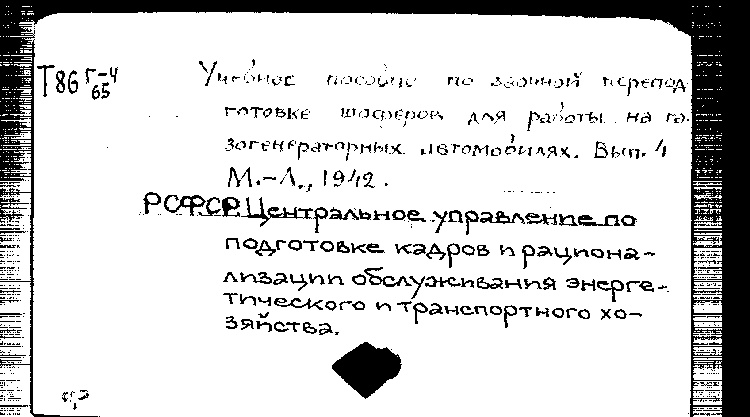 Т86 г-4
65
Учебное пособие по заочной перепод
готовке шоферов для работы на га
зогенераторных автомобилях. Вып. 4
М.-Л., 1942.
РСФСР. Центральное управление по
подготовке кадров и рациона-
лизации обслуживания энерге-
тического и транспортного хо-
зяйства.